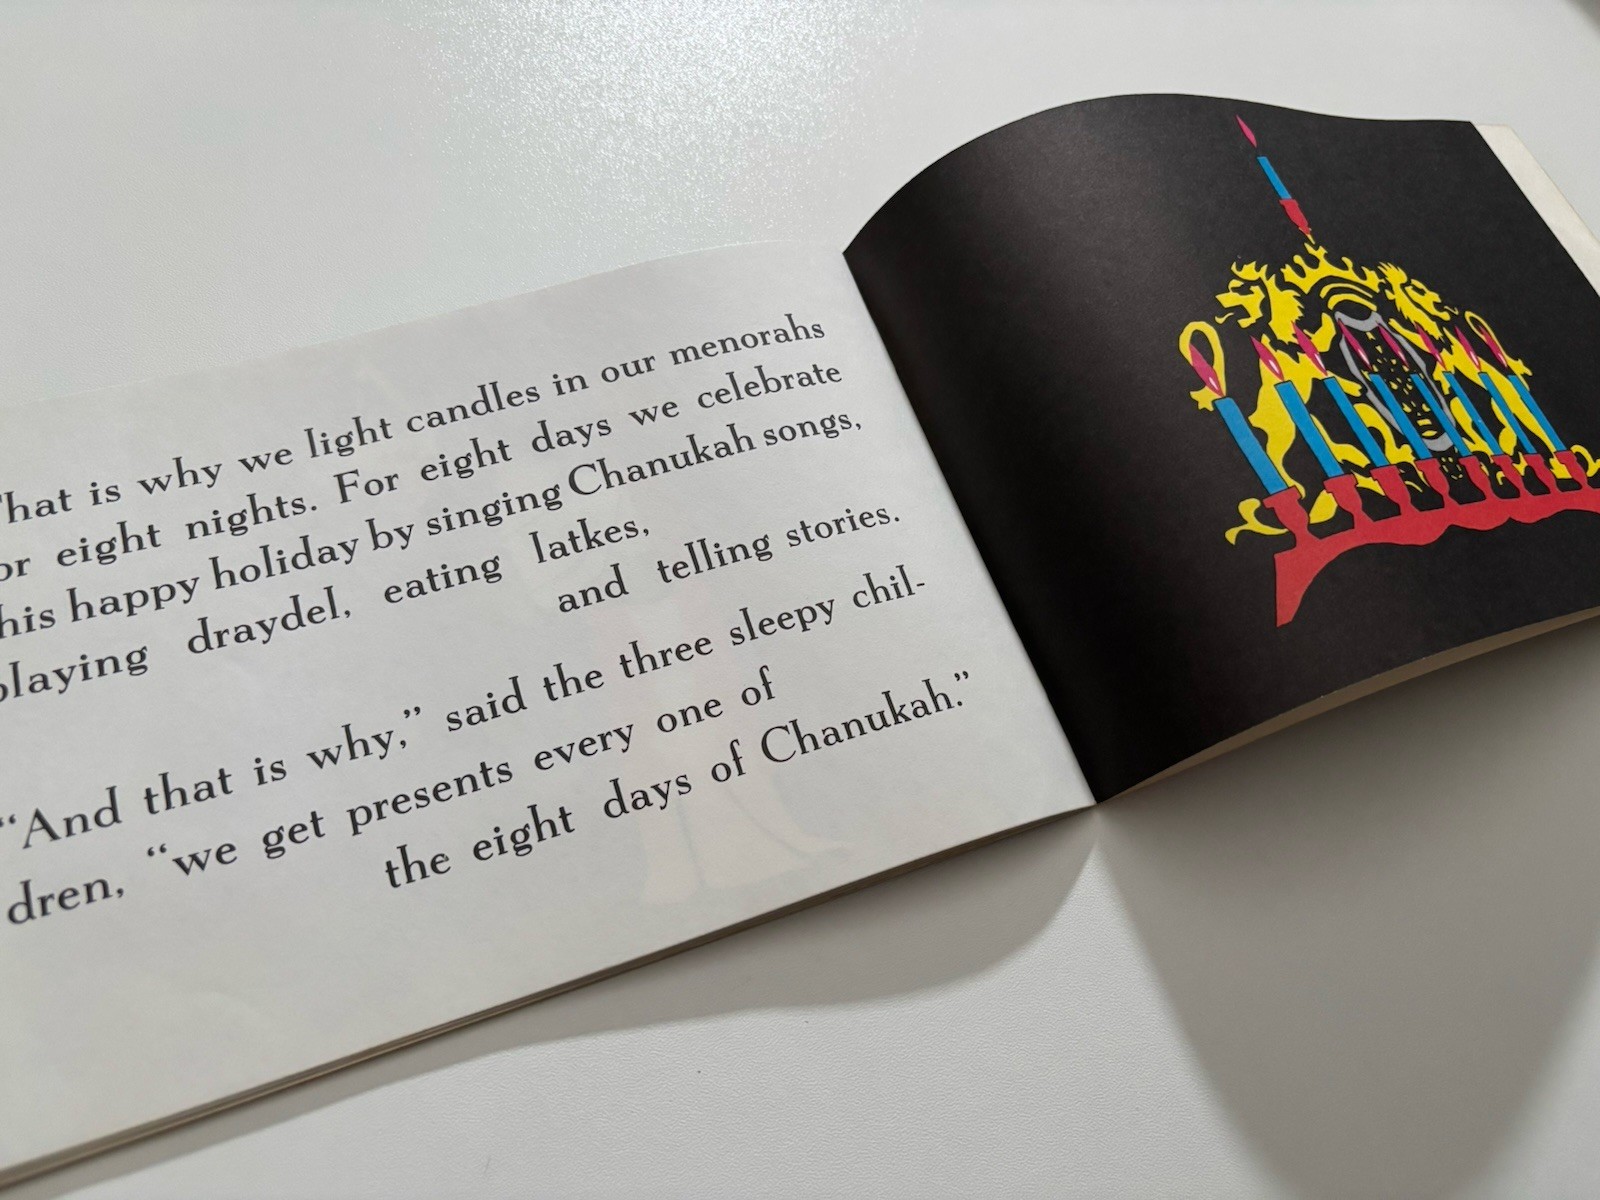 That is why we light candles in our menorahs
for eight nights. For eight days we celebrate
this happy holiday by singing Chanukah songs,
playing draydel, eating latkes,
and telling stories.
“And that is why,” said the three sleepy chil-
dren, “we get presents every one of
the eight days of Chanukah.”